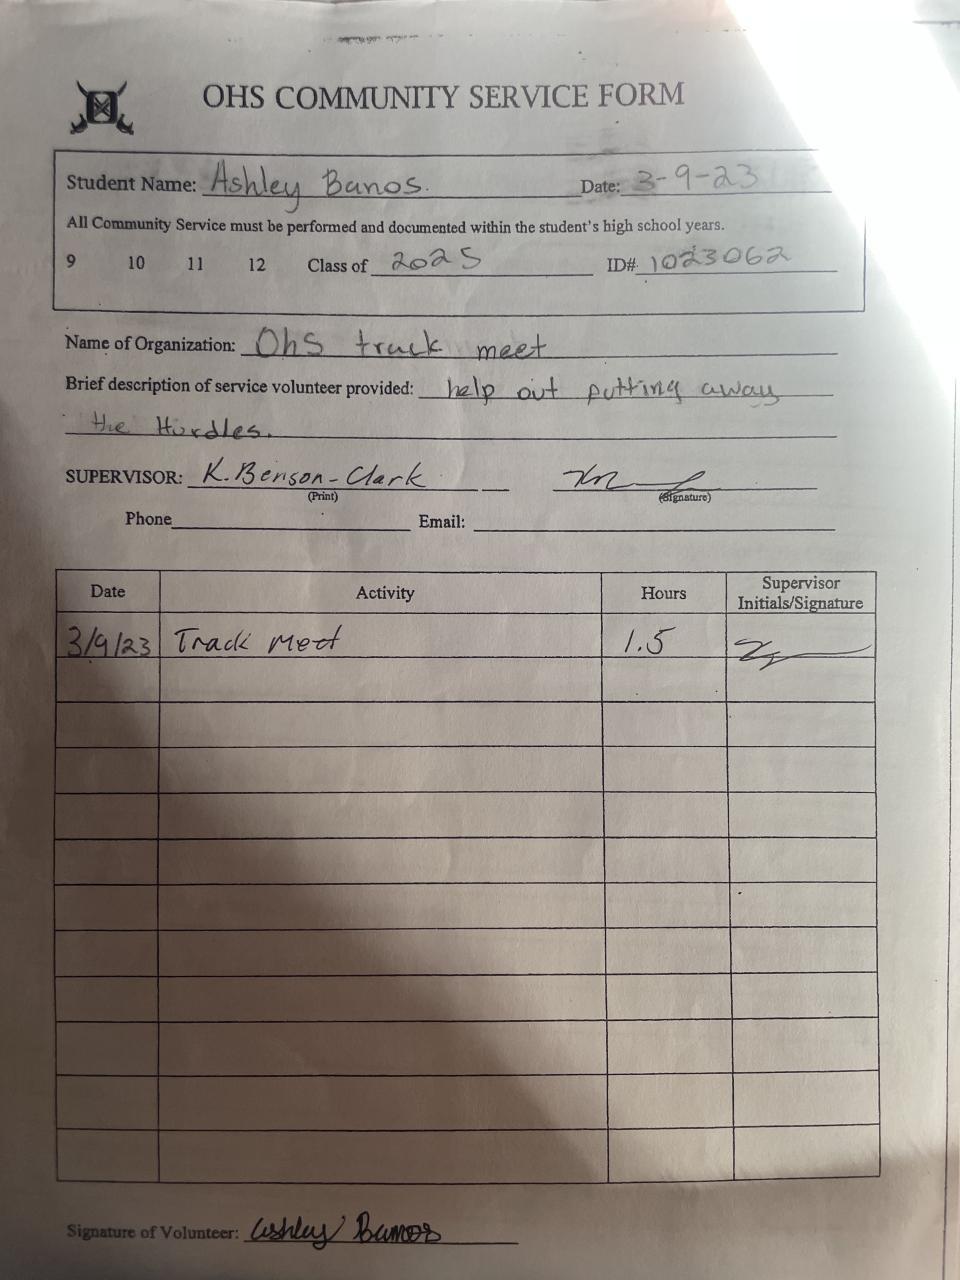 OHS COMMUNITY SERVICE FORM
Student Name: Ashley Banos. Date: 3-9-23
All Community Service must be performed and documented within the student's high school years.
9 10 11 12 Class of 2025 ID# 1023062
Name of Organization: OhS track meet
Brief description of service volunteer provided: help out putting away
the Hurdles.
SUPERVISOR: K. Benson-Clark
(Print) (Signature)
Phone Email:
Date Activity Hours Supervisor Initials/Signature
3/9/23 Track Meet 1.5
Signature of Volunteer: Ashley Banos